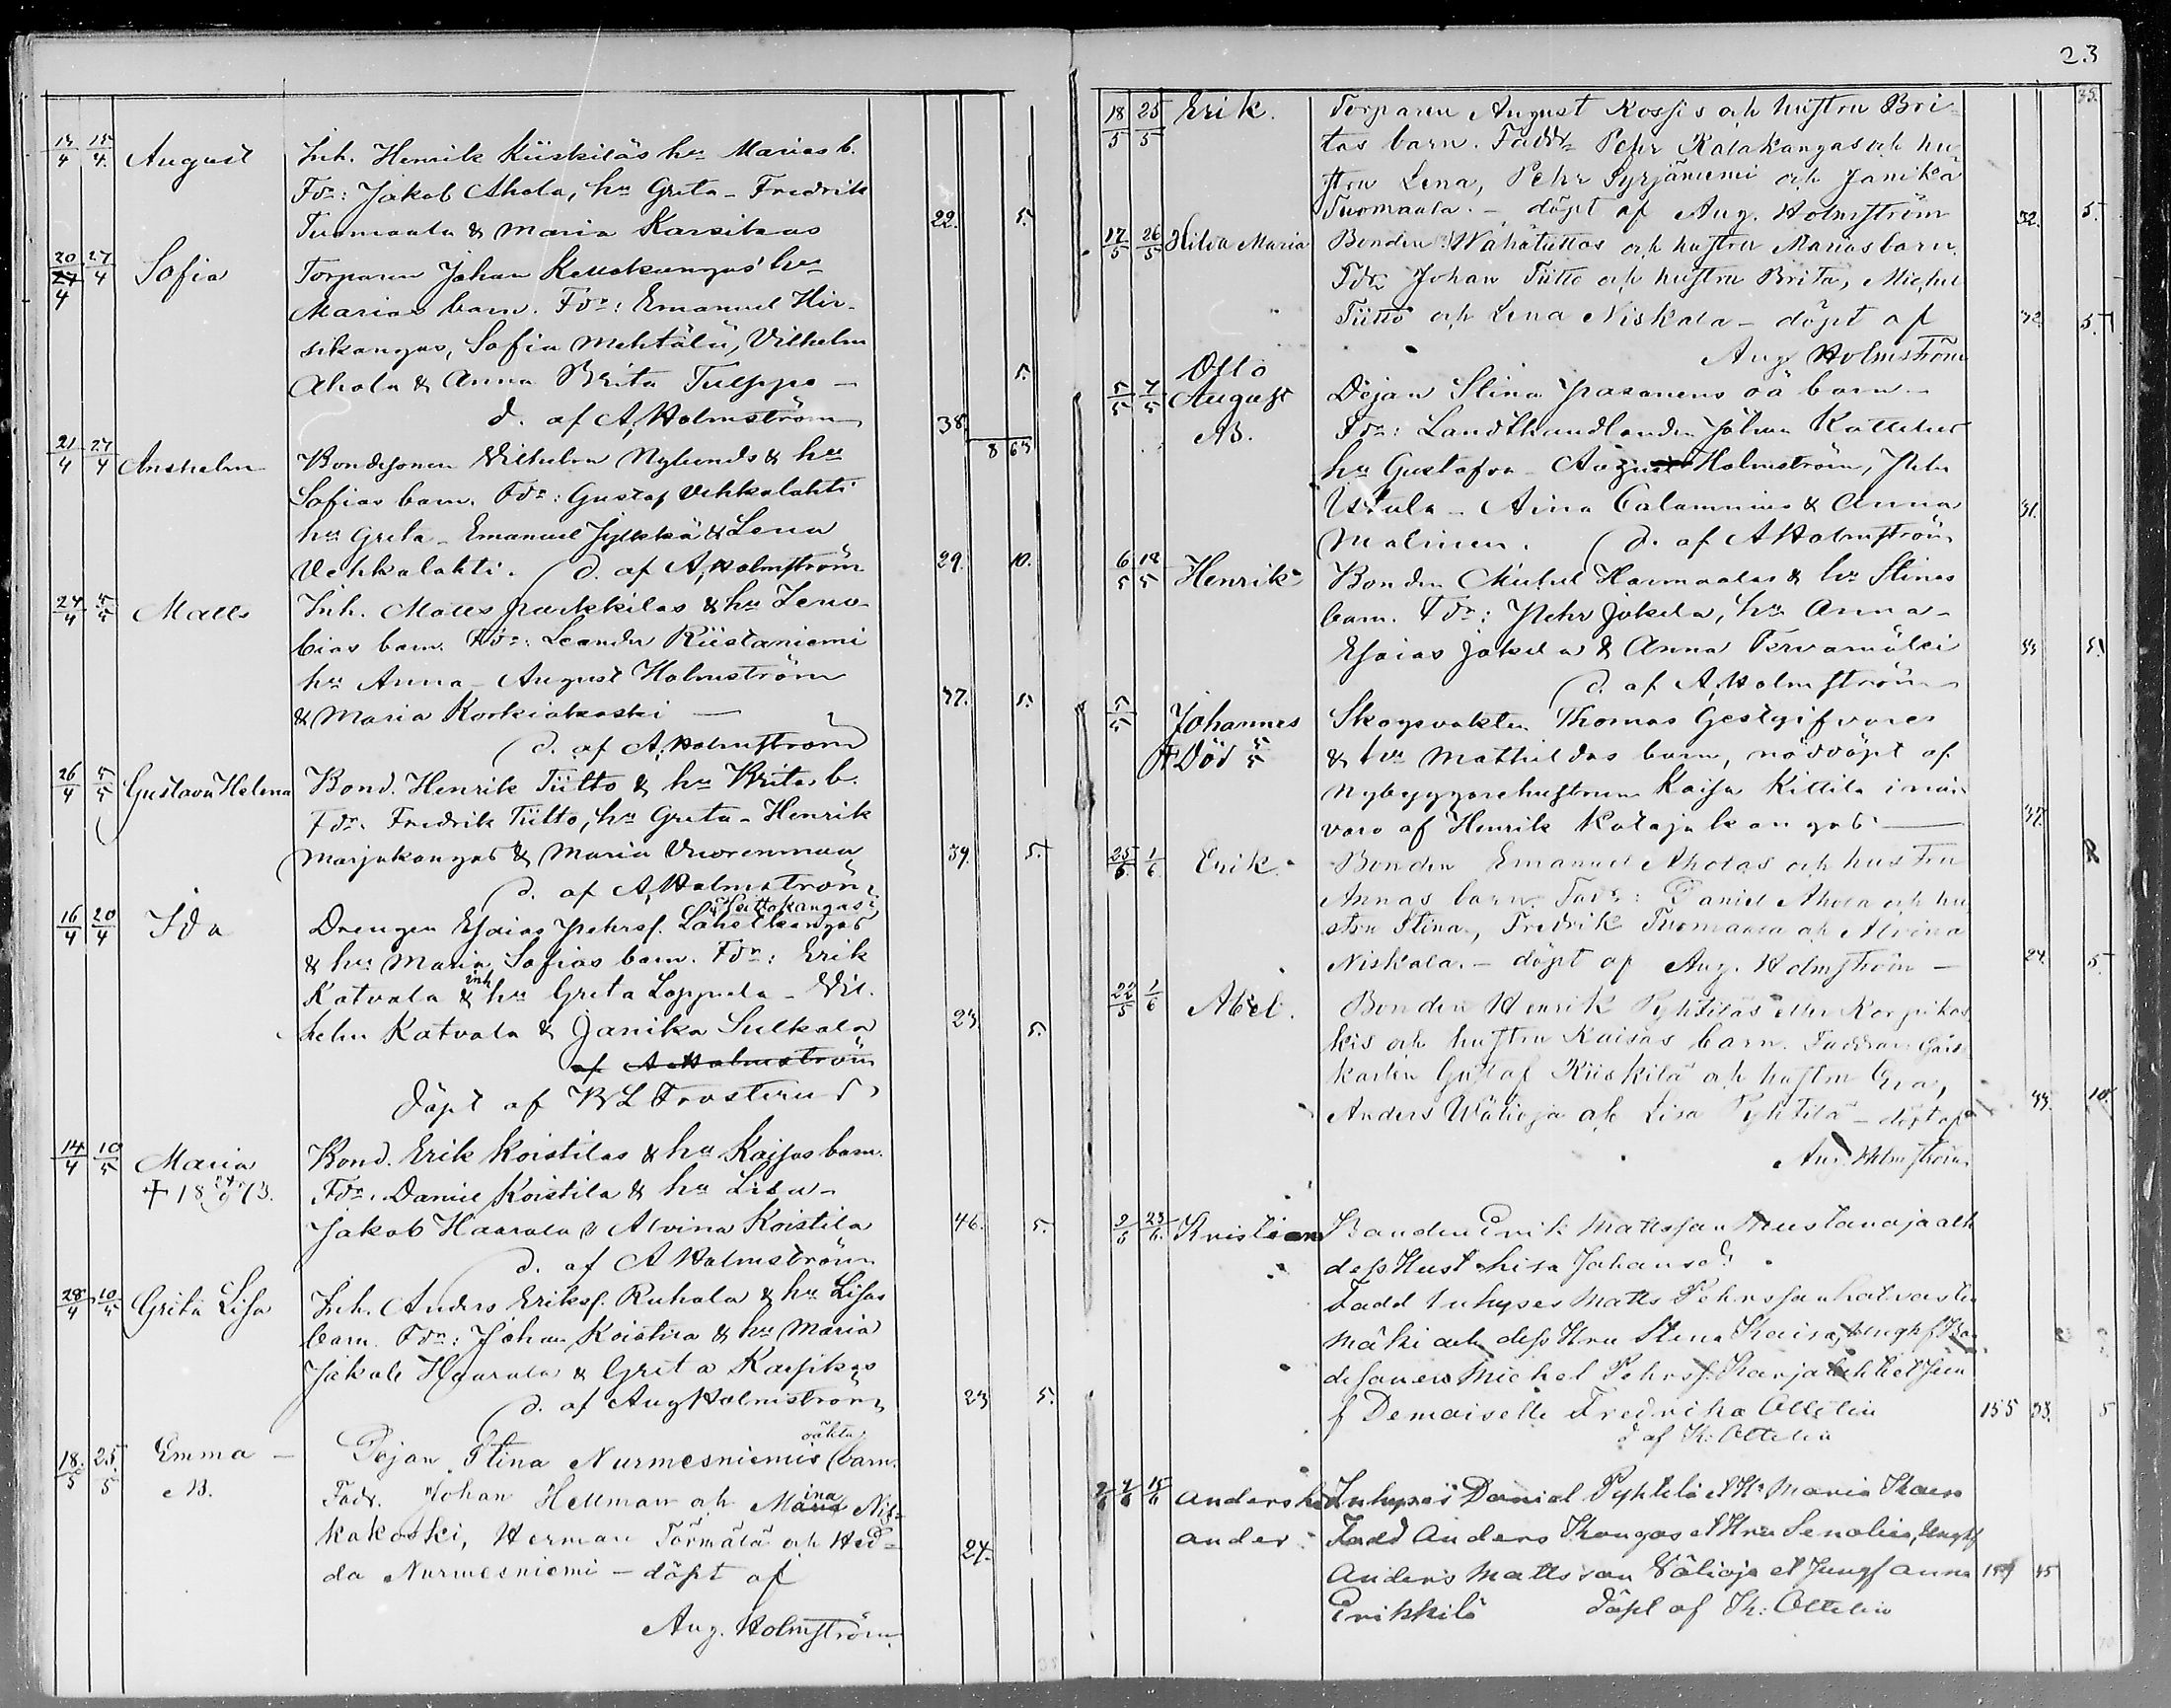 23
13/4 15/4 August Inh. Henrik Kiiskiläs hu Marias b.
Fdr: Jakob Ahola, hu Greta - Fredrik
Tuomaala & Maria Karsikas 22. 5.
20/4 27/4 Sofia Torparen Johan Keuskangas' hu
Marias barn. Fdr: Emanuel Hir-
sikangas, Sofia Mehtälä, Vilhelm
Ahola & Anna Brita Tulppo - 5.
d. af A, Holmström 38.
8 63
21/4 27/4 Anshelm Bondesonen Vilhelm Nylunds & hu
Sofias barn. Fdr: Gustaf Vehkalahti
hu Greta - Emanuel Jylkkä & Lena
Vehkalahti. d. af A, Holmström 29. 10.
24/4 5/5 Matts Inh. Matts Junkkilas & hu Zeno-
bias barn. Fdr: Leander Riistaniemi
hu Anna - August Holmström
& Maria Korkiakoski — 37. 5.
d. af A, Holmström
26/4 5/5 Gustava Helena Bond. Henrik Tiitto & hu Britas b.
Fdr. Fredrik Tiitto, hu Greta - Henrik
Marjakangas & Maria Vuorenmaa 39. 5.
d. af A, Holmström
16/4 20/4 Ida Drengen Esaias Pehrsf. Lähetkangas
& hu Maria Sofias barn. Fdr: Erik
Katvala & inh hu Greta Loppela - Vil-
helm Katvala & Janika Sulkala 23. 5.
af A Holmström
Döpt af B L Frosterus
14/4 10/5 Maria Bond. Erik Koistilas & hu Kaisas barn.
† 18 24/9 73. Fdr. Daniel Koistila & hu Lisa -
Jakob Haarala & Alvina Koistila 46. 5.
d. af A Holmström
28/4 10/5 Greta Lisa Inh. Anders Eriksf. Ruhala & hu Lisas
barn. Fdr: Johan Koistila & hu Maria
Jakob Haarala & Greta Karsikas
d. af Aug Holmström 23 5.
18/5 25/5 Emma - Pejan Stina Nurmesniemis oäkta barn.
B. Fadr. Johan Hellman och Maria ina Nis-
kakoski, Herman Törmälä och Hed=
da Nurmesniemi - döpt af 24.
Aug. Holmström
18/5 25/5 Erik. Torparen August Kossis och hustru Bri- 35.
tas barn. Faddr Pehr Katakangas och hu-
stru Lena, Pehr Syrjäniemi och Janika
Tuomaala. - döpt af Aug. Holmström 32. 5.
17/5 26/5 Hilda Maria Bonden Wähätiittos och hustru Marias barn.
Fdr Johan Tiitto och hustru Brita, Michel
Tiitto och Lena Niskala - döpt af 32 5.
Aug Holmström
Otto
5/5 7/5 August Pejan Stina Pasanens oä barn -
B. Fdr: Landthandlanden Johan
hu Gustafva - August Holmström, Pehr
Uitula - Aina Calamnius & Anna 31.
Malinen. d. af A Holmström
6/5 18/5 Henrik Bonden Michel Harmaalas & hu Stinas
barn. Fdr: Pehr Jokela, hu Anna -
Esaias Jokela & Anna Tervamäki 5.
d. af A, Holmström
5/5 Johannes Skogsvakten Thomas Gestgifvares
† Död 5/5 & hu Mathildas barn, nöddöpt af
Nybyggarehustrun Kaisa Kittila i när-
varo af Henrik Katajakangas — 37.
25/5 1/6 Erik. Bonden Emanuel Aholas och hustru
Annas barn. Fadr: Daniel Ahola och hu-
stru Stina, Fredrik Tuomaala och Alvina
Niskala. - döpt af Aug. Holmström - 24. 5.
22/5 1/6 Abel. Bonden Henrik Pyhtiläs eller Korpikos-
kis och hustru Kaisas barn. Faddrar: Gårds-
karlen Gustaf Kiiskilä och hustru
Anders Wälioja och Lisa Pyhtilä - döpt af 10.
Aug. Holmström
23/6 Kristian Bonden Erik Mattsson och
dess Hust Lisa Johansd:
Fadd Inhyses Matts Pehrsson
mäki och dess Hru Stina Kaisa, Bon
desonen Michel Pehrsf.
f Demoiselle Fredrika Ottelin 155 33. 5
d af K: Ottelin
15/6 Anders Inhyses Daniel Pyhtilä et Hu Maria
ander Fadd Anders Kangas et Hru Senobia,
Anders Mattsson Välioja et Jungf Anna 45
Erikkilä Döpt af K: Ottelin